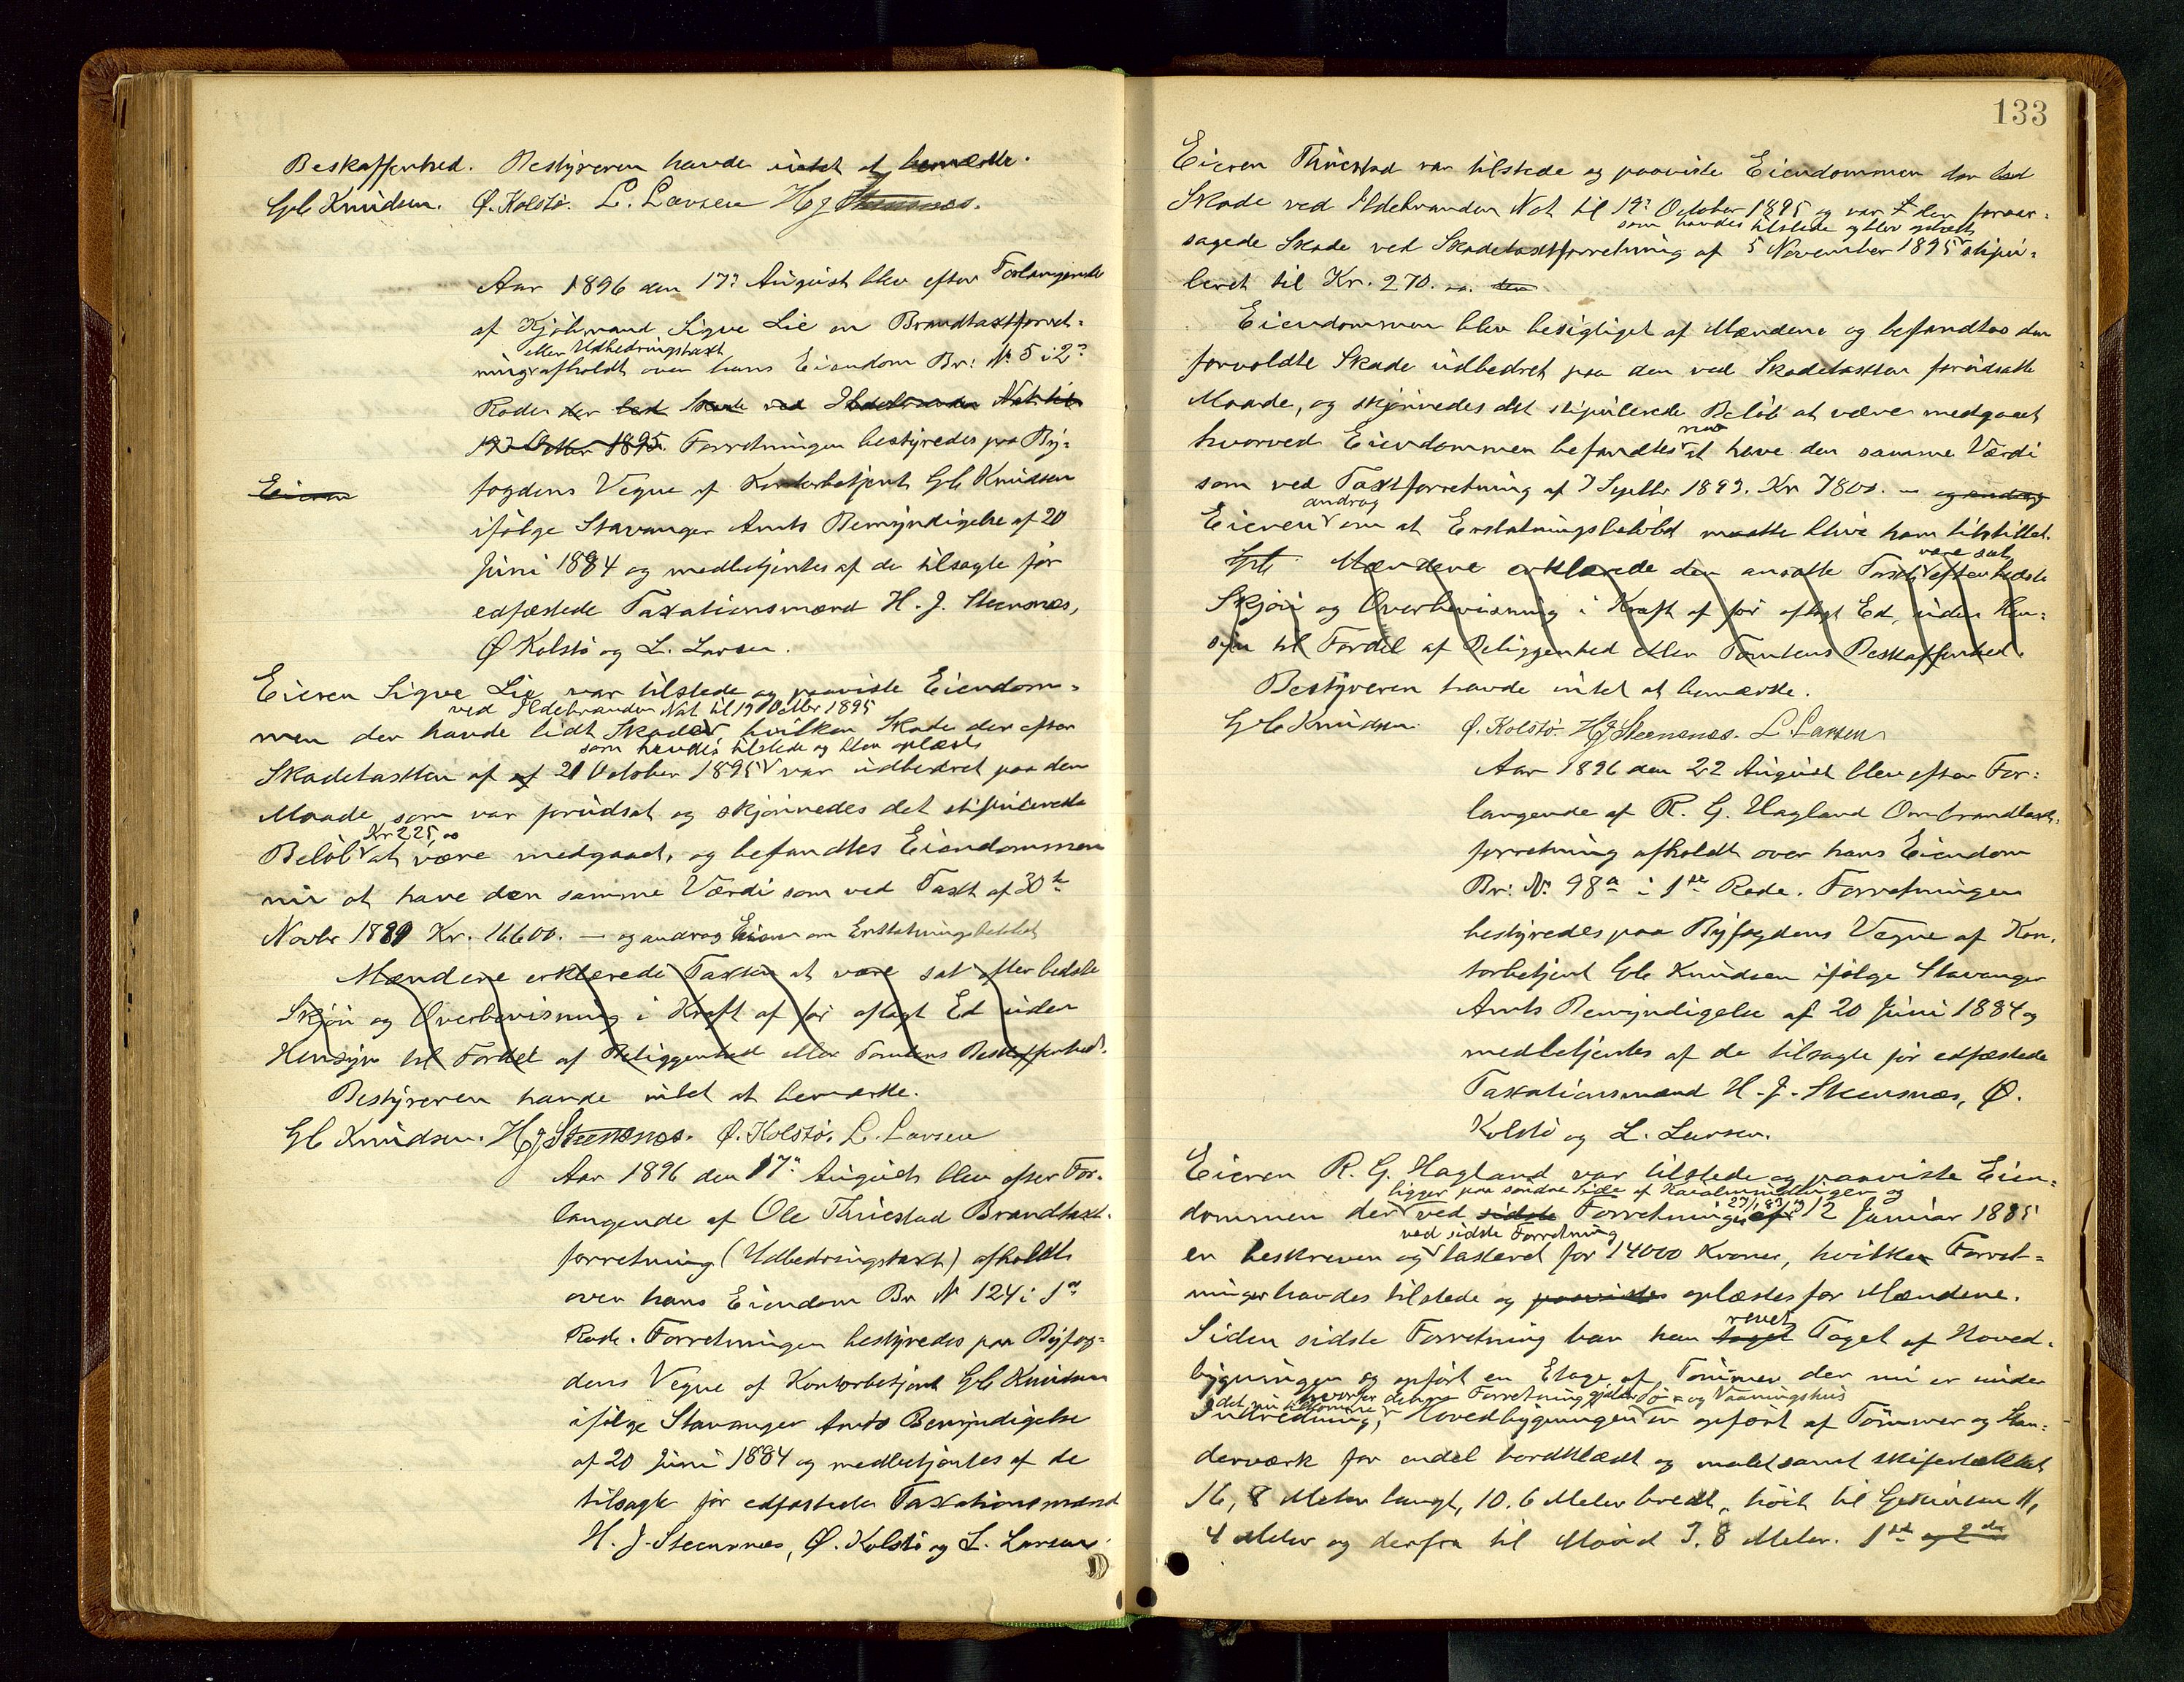 Beskaffenhed. Bestyreren havde intet at bemærke.
Gb Knudsen. Ø. Kolstø. L. Larsen HJ Steensnæs.
Aar 1896 den 17? August blev efter Forlangende
af Kjøbmand Sigve Lie en Brandtaxtforret-
eller Udbedringstaxt
ning afholdt over hans Eiendom Br: № 5 i 2?
Rode der led Skade ved Ildebranden Nat til
19? Octbr 1895. Forretningen bestyredes paa By-
Eieren
fogdens Vegne af Kontorbetjent Gb Knudsen
ifølge Stavanger Amts Bemyndigelse af 20
Juni 1884 og medbetjentes af de tilsagte før
edfæstede Taxationsmænd H. J. Steensnæs,
Ø Kolstø og L. Larsen.
Eieren Sigve Lie var tilstede og paaviste Eiendom-
ved Ildebranden Nat til 19 Octbr 1895
men der havde lidt Skade hvilken Skade der efter
som havdes tilstede og blev oplæst
Skadetaxten af af 21 October 1895 var udbedret paa den
Maade som var forudsat og skjønnedes det stipulerede
Kr 225,00
Beløb at være medgaaet, og befandtes Eiendommen
nu at have den samme Værdi som ved Taxt af 30te
Novbr 1889 Kr. 16600. — og androg Eieren om Erstatningsbeløbet
Mændene erklærede Taxten at være sat efter bedste
Skjøn og Overbevisning i Kraft af før aflagt Ed uden
Hensyn til Fordel af Beliggenhed eller Tomtens Beskaffenhed.
Bestyreren havde intet at bemærke.
Gb Knudsen. HJ Steensnæs. Ø. Kolstø. L. Larsen
Aar 1896 den 17? August blev efter For-
langende af Ole Thuestad Brandtaxt-
forretning (Udbedringstaxt) afholdt
over hans Eiendom Br № 124 i 1?
Rode. Forretningen bestyredes paa Byfog-
dens Vegne af Kontorbetjent Gb Knudsen
ifølge Stavanger Amts Bemyndigelse
af 20 Juni 1884 og medbetjentes af de
tilsagte før edfæstede Taxationsmænd
H. J. Steensnæs, Ø. Kolstø og L. Larsen.
133
Eieren Thuestad var tilstede og paaviste Eiendommen der led
Skade ved Ildebranden Nat til 19? October 1895 og var den foraar-
som havdes tilstede og blev oplæst
sagede Skade ved Skadetaxtforretning af 5 November 1895 stipu-
leret til Kr. 270. den
Eiendommen blev besigtiget af Mændene og befandtes den
forvoldte Skade udbedret paa den ved Skadetaxten forudsatte
Maade, og skjønnedes det stipulerede Beløb at være medgaaet
nu
hvorved Eiendommen befandtes at have den samme Værdi
som ved Taxtforretning af 7 Septbr 1893. Kr 7800. — og androg
androg
Eieren om at Erstatningsbeløbet maatte blive ham tilstillet.
være sat
Gb Mændene erklærede den ansatte Taxt efter bedste
Skjøn og Overbevisning i Kraft af før aflagt Ed, uden Hen-
syn til Fordel af Beliggenhed eller Tomtens Beskaffenhed.
Bestyreren havde intet at bemærke.
Gb Knudsen Ø. Kolstø. HJ Steensnæs. L. Larsen
Aar 1896 den 22 August blev efter For-
langende af R. G. Hagland Ombrandtaxt-
forretning afholdt over hans Eiendom
Br: № 98a i 1ste Rode. Forretningen
bestyredes paa Byfogdens Vegne af Kon-
torbetjent Gb Knudsen ifølge Stavanger
Amts Bemyndigelse af 20 Juni 1884 og
medbetjentes af de tilsagte før edfæstede
Taxationsmænd H. J. Steensnæs, Ø.
Kolstø og L. Larsen.
Eieren R. G. Hagland var tilstede og paaviste Eien-
ligger paa søndre Side af og
dommen der ved sidste Forretninger af 12 Januar 1885
ved sidste Forretning
er beskreven og taxeret for 14000 Kroner, hvilke Forret-
ninger havdes tilstede og paavistes oplæstes for Mændene.
revet
Siden sidste Forretning har han taget Taget af Hoved-
bygningen og opført en Etage af Tømmer der nu er under
hvorfor denne Forretning og Vaaningshus
Indredning, Hovedbygningen er opført af Tømmer og Stan-
derværk for endel bordklædt og malet samt skifertækket
16,8 Meter langt, 10.6 Meter bredt, høit til Gesimsen 11,
4 Meter og derfra til Mønet 3.8 Meter. 1ste og 2den